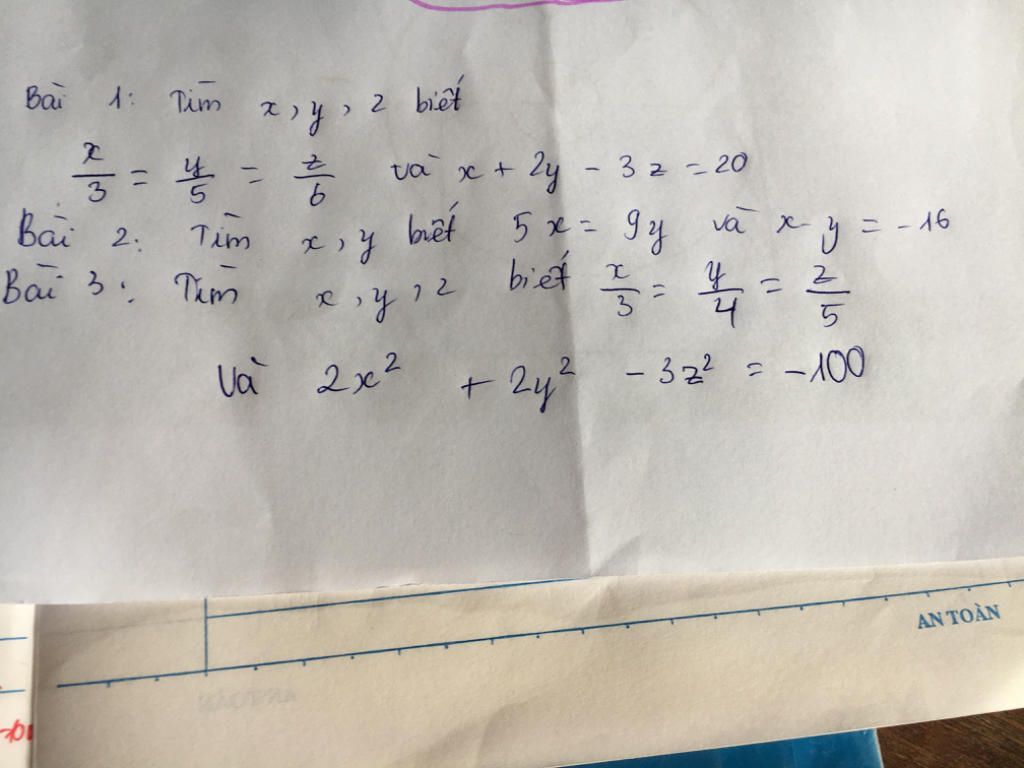 Bài 1: Tìm x, y, z biết
x/3 = y/5 = z/6 và x + 2y - 3z = 20
Bài 2: Tìm x, y biết 5x = 9y và x - y = -16
Bài 3: Tìm x, y, z biết x/3 = y/4 = z/5
Và 2x² + 2y² - 3z² = -100
AN TOÀN